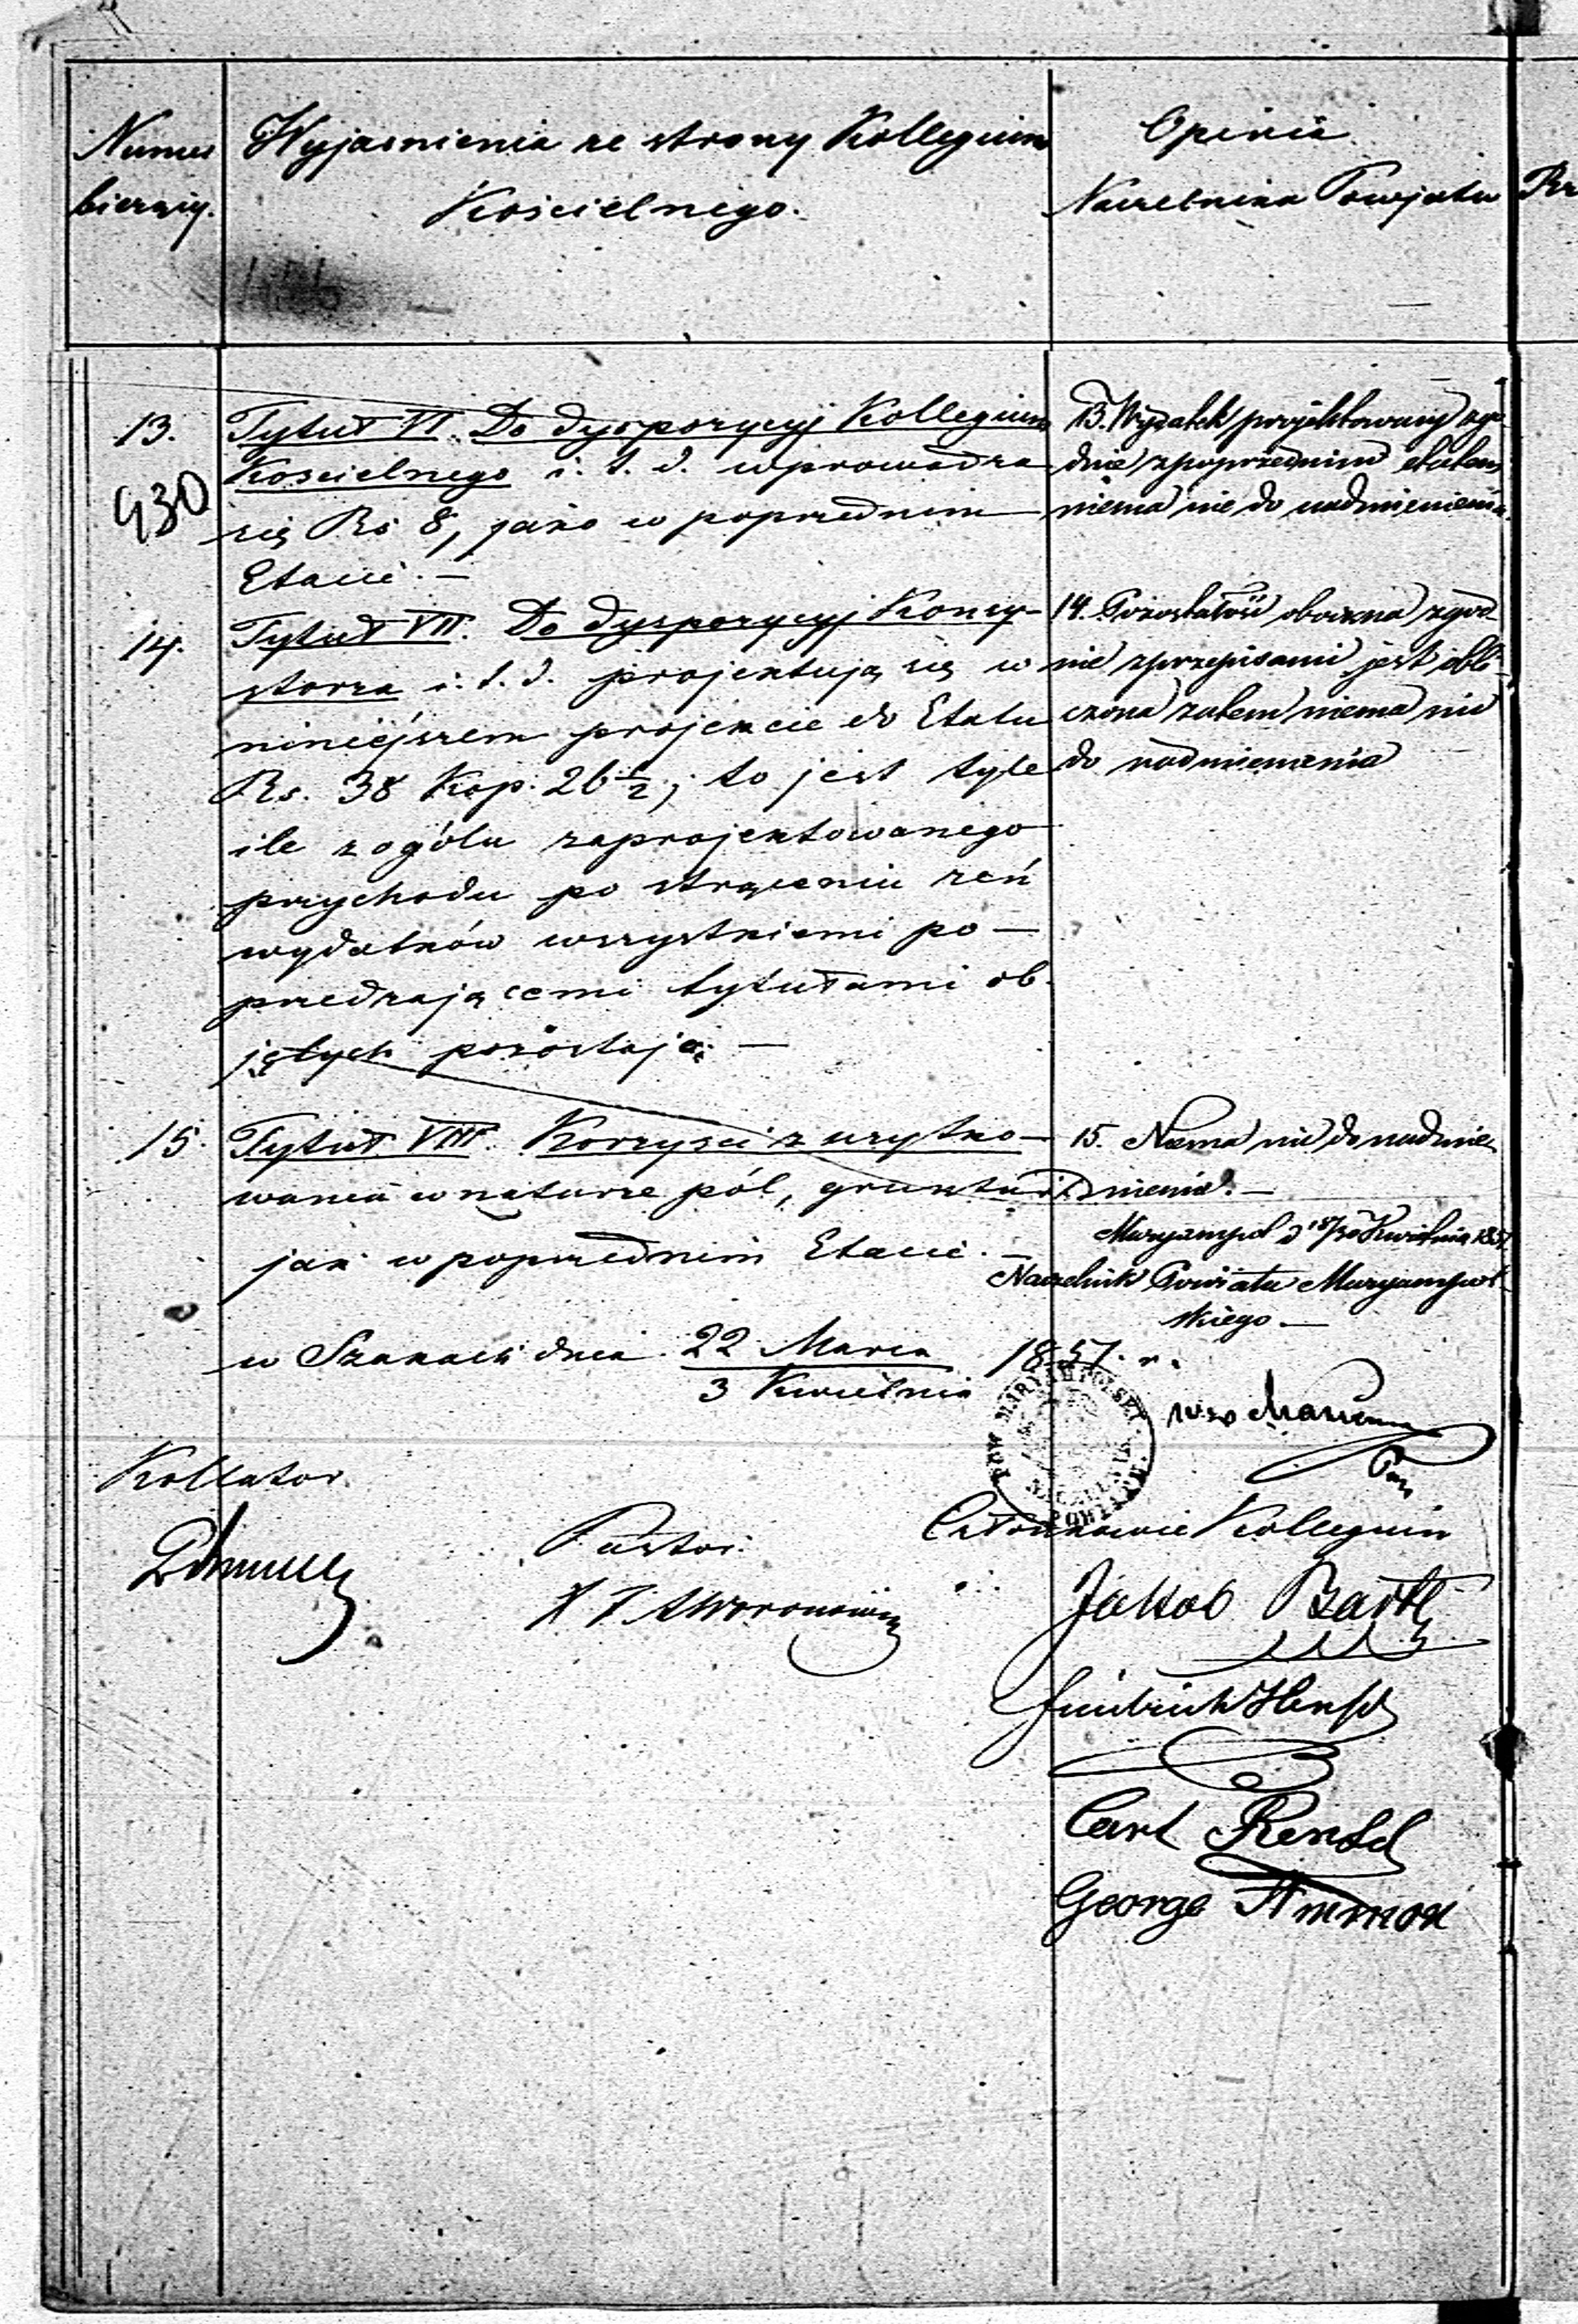 Numer
bierzący.
Wyjasnienia ze strony Kollegium
Kościelnego.
Opinia
Naczelnika Powjatu
13.
930
Tytuł VI. Do dyspozycyj Kollegium
Kościelnego i. t. d. wprowadza
się Rs 8, jako w poprzednim
Etacie. —
13. Wydatek projektowany zgo-
dnie zpoprzednim etatem
niema nic do nadmienienia
14.
Tytuł VII. Do dyspozycyj Konsy-
storza i. t. d. projektują się w
niniejszem projekcie do Etatu
Rs. 38 Kop. 26½; to jest tyle
ile z ogółu zaprojektowanego
przychodu po strąceniu zeń
wydatków wszystkiemi po —
przedzającemi tytułami ob-
jętych pozostaje. —
14. Pozostałość oboczna zgod-
nie zprzepisami jest obli
czona zatem niema nic
do nadmienienia
15.
Tytuł VIII. Korzysci z uzytko —
wania w naturze pól, gruntu i t d
jak w poprzednim Etacie. —
15. Niema nic do nadmie-
nienia. —
Maryampol d 18/30 Kwietnia 1857
Naczelnik Powiatu Maryampol-
skiego. —
w Szakach dnia 22 Marca
3 Kwietnia 1857. r.
POW MARYAMPOLSKI
NACZELNIK
POWIATU
Kollator.
Pastor.
Członkowie Kollegium
Jakob Bzartl
Carl Rentel
George Ammon